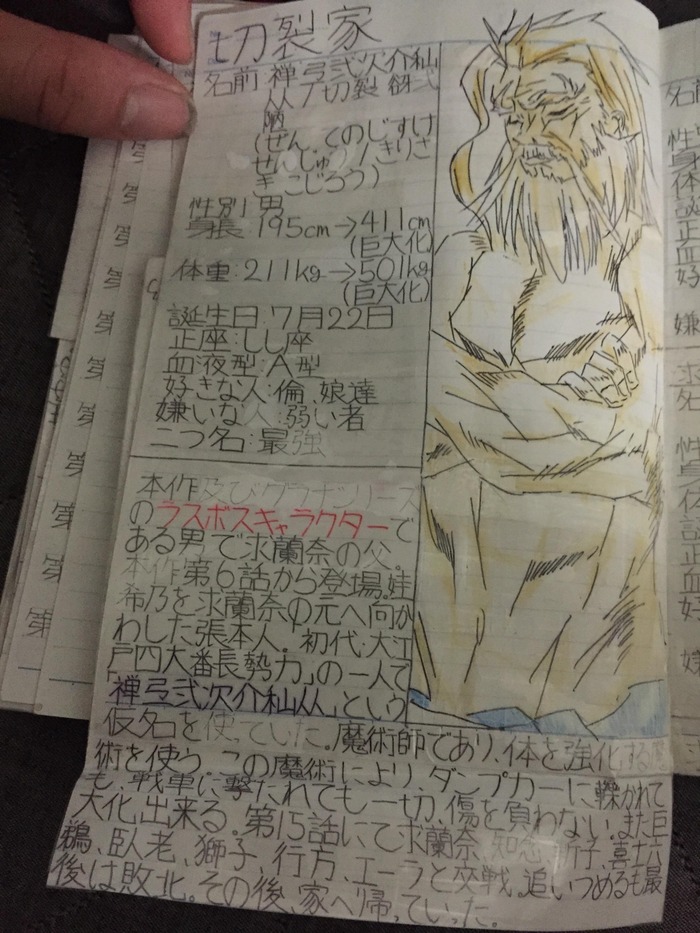 切裂家
名前 禅弖弐次介秈
从/切裂 谺弐
陋
(ぜんてのじすけ
せんじゅう/きりさ
きこじろう)
性別 男
身長 195cm→411cm
(巨大化)
体重:211kg→501kg
(巨大化)
誕生日:7月22日
正座:しし座
血液型:A型
好きな人:倫、娘達
嫌いな人:弱い者
二つ名:最強
本作及び
のラスボスキャラクターで
ある男で求蘭奈の父。
本作第6話から登場。娃
希乃を求蘭奈の元へ向か
わした張本人。初代「大江
戸四大番長勢力」の一人で
「禅弖弐次介秈从」という
仮名を使っていた。魔術師であり、体を強化する魔
術を使う。この魔術により、ダンプカーに轢かれて
も、戦車に撃たれても一切、傷を負わない。また巨
大化出来る。第15話にて求蘭奈、知念、祈子、喜十六
鵺、臥老、獅子、行方、エーラと交戦。追いつめるも最
後は敗北。その後、家へ帰っていった。
第
第
第
第
第
第
第
第
第
名前
性
身
体
誕
正
血
好
嫌
名
性
身
体
誕
正
血
好
嫌